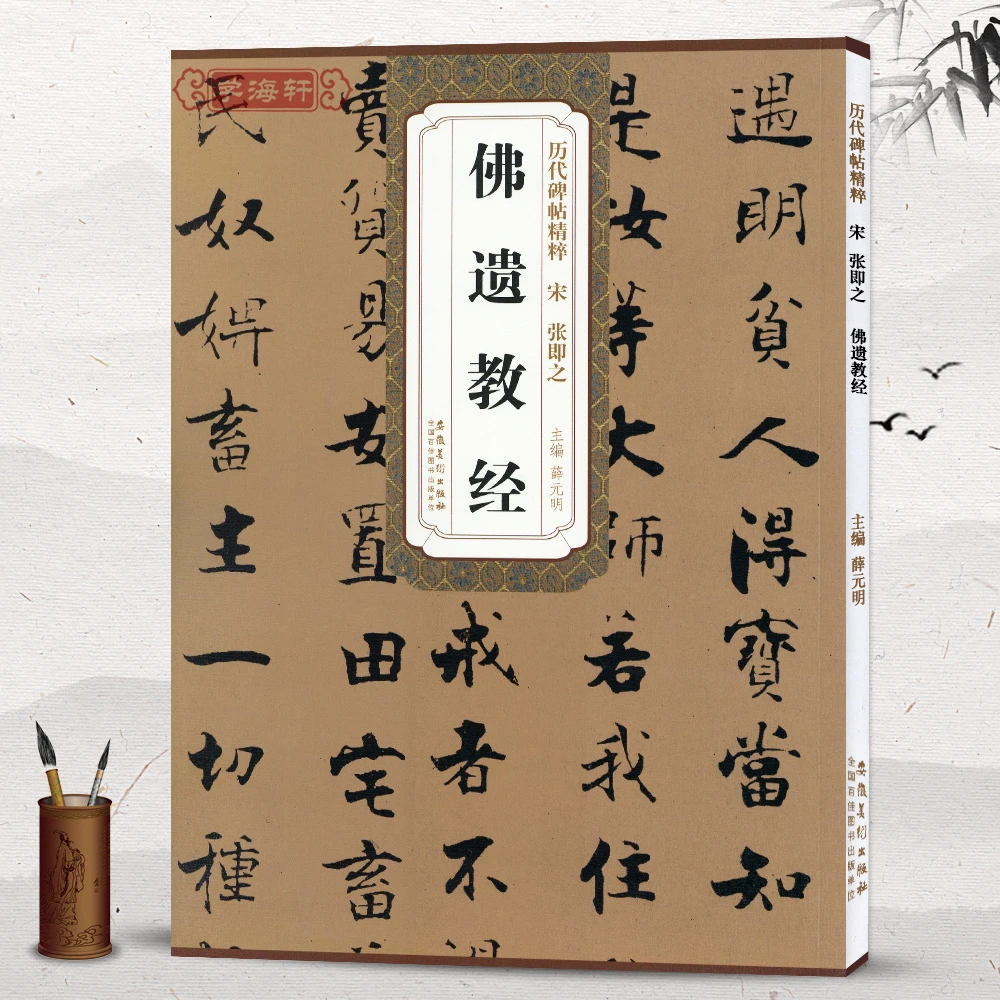 学海轩
佛遗教经
历代碑帖精粹 宋 张即之
主编 薛元明
安徽美术出版社
全国百佳图书出版单位
遇明貧人得寶當知
是汝等大師若我住
戒者不
賣貿易安置田宅畜
民奴婢畜生一切種
历代碑帖精粹 宋 张即之 佛遗教经
主编 薛元明
安徽美术出版社
全国百佳图书出版单位